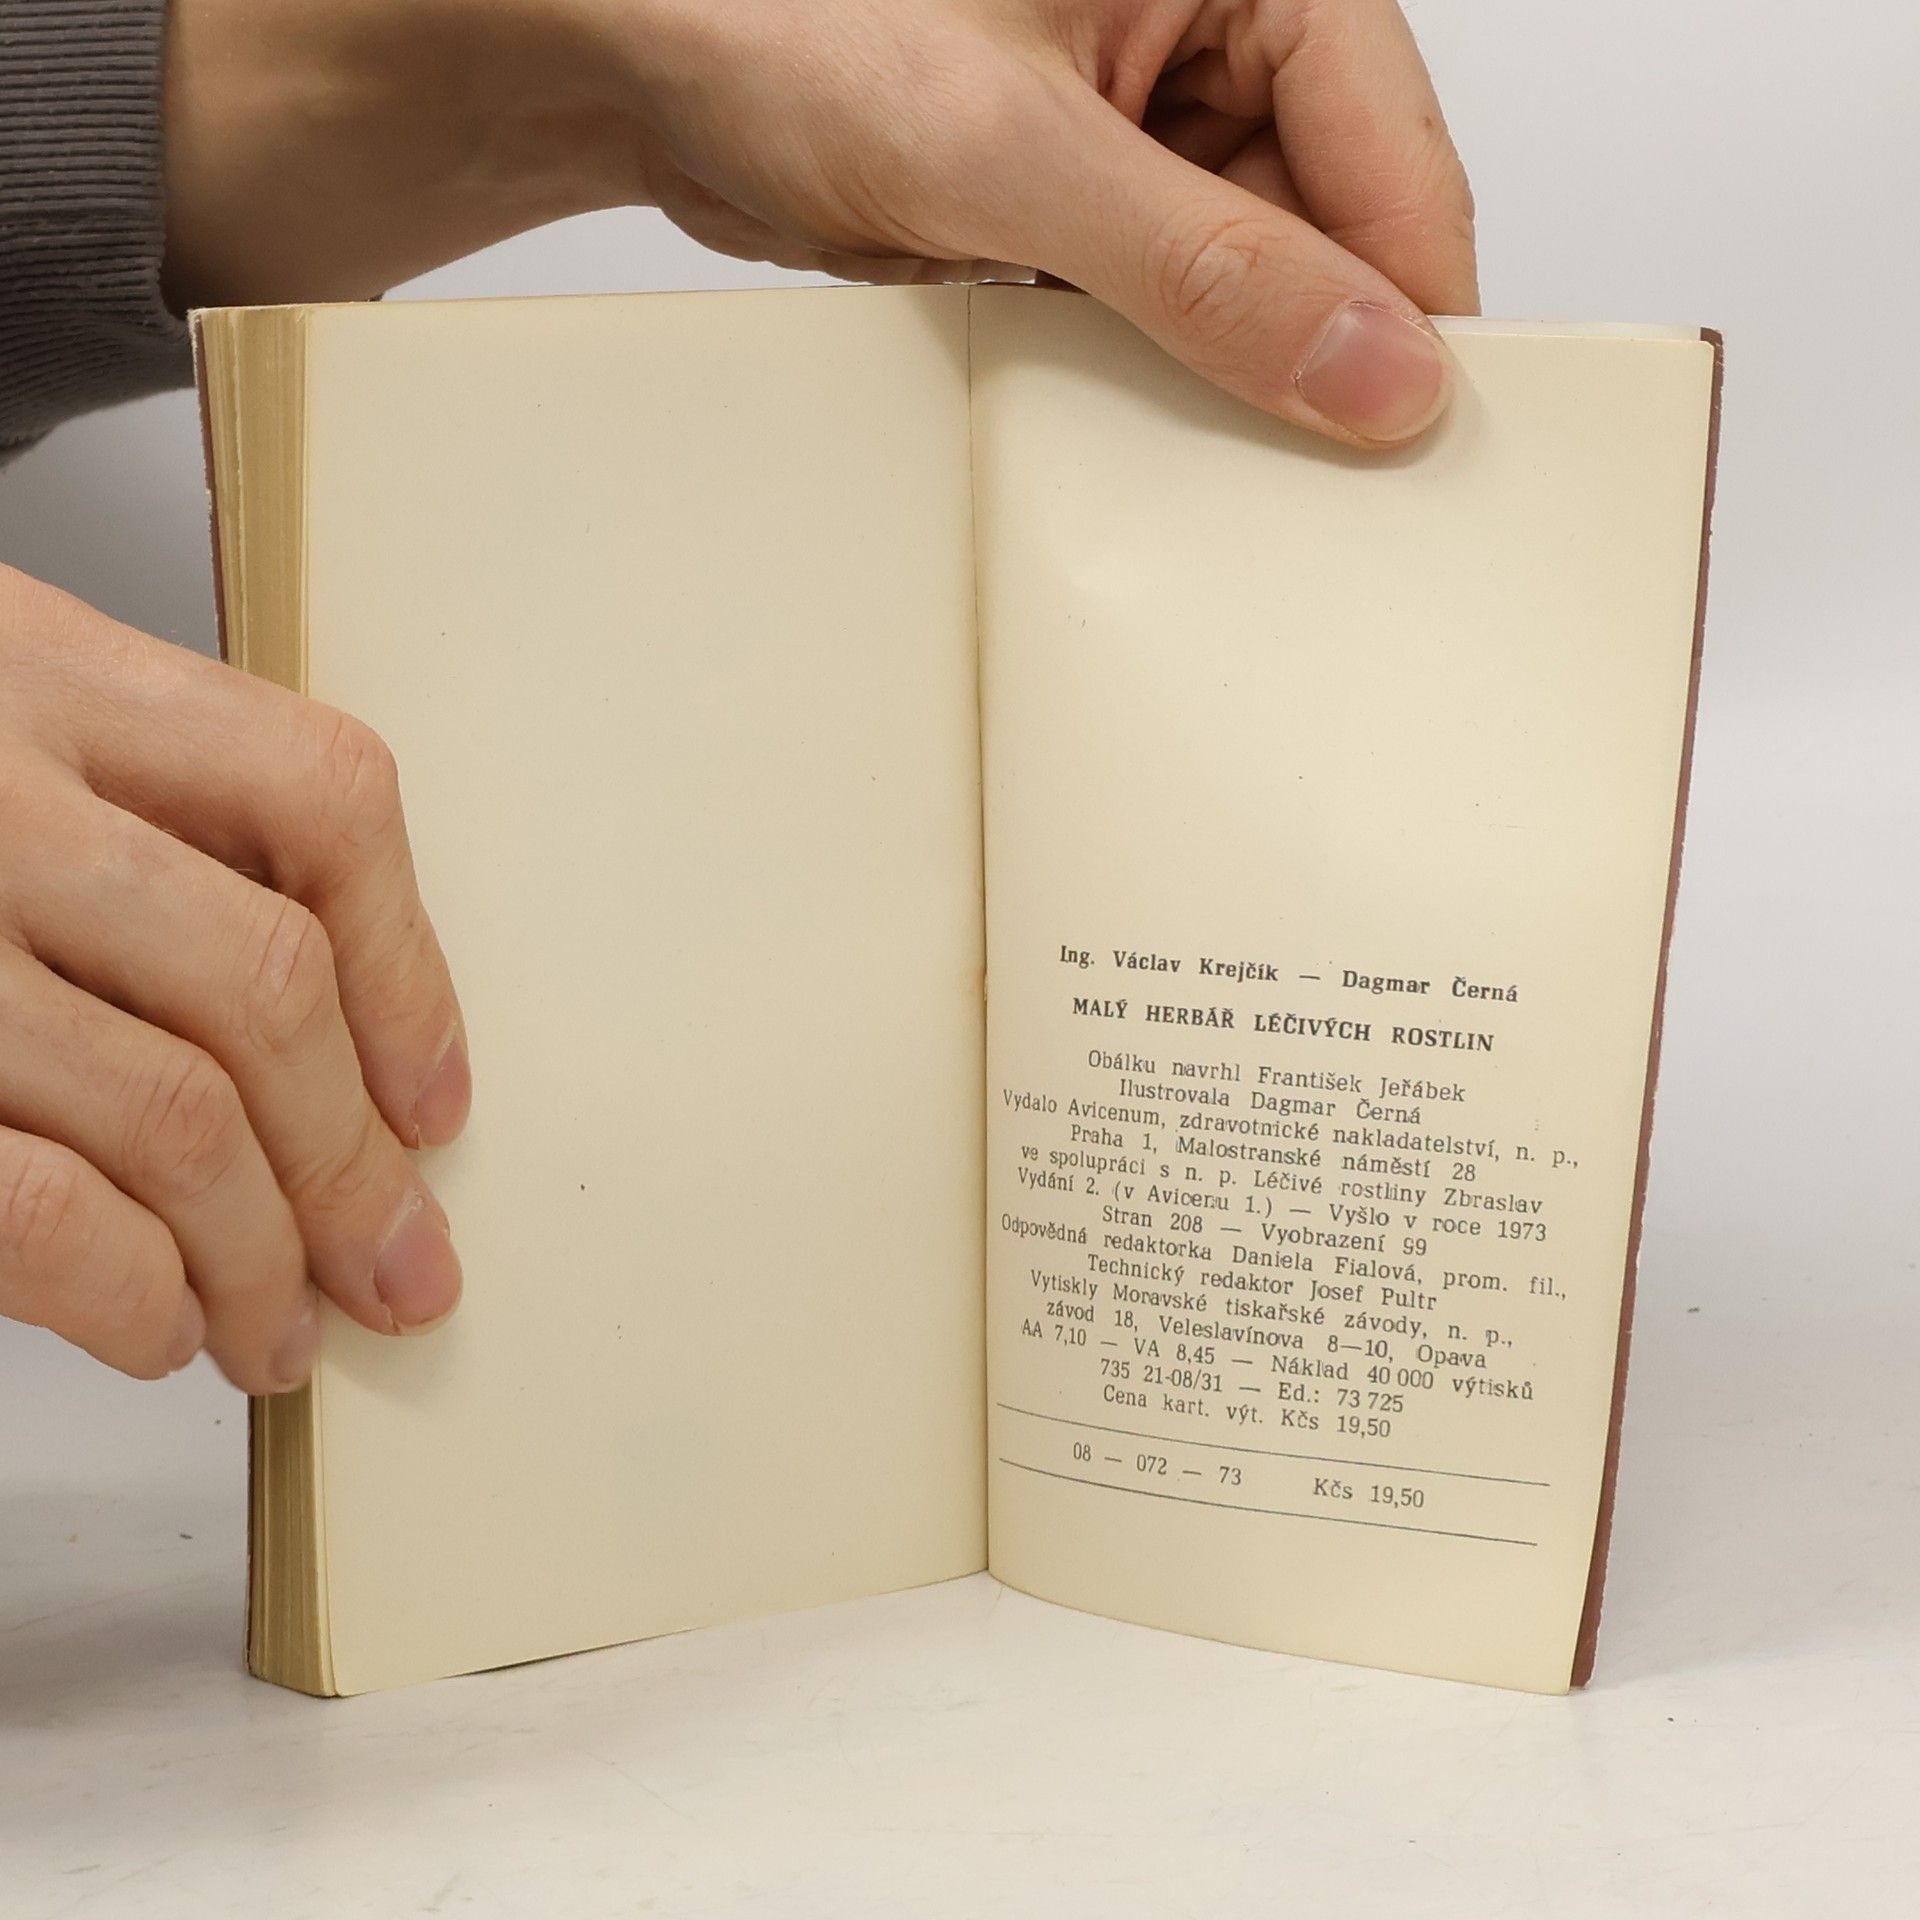 Ing. Václav Krejčík — Dagmar Černá
MALÝ HERBÁŘ LÉČIVÝCH ROSTLIN
Obálku navrhl František Jeřábek
Ilustrovala Dagmar Černá
Vydalo Avicenum, zdravotnické nakladatelství, n. p.,
Praha 1, Malostranské náměstí 28
ve spolupráci s n. p. Léčivé rostliny Zbraslav
Vydání 2. (v Avicenu 1.) — Vyšlo v roce 1973
Stran 208 — Vyobrazení 99
Odpovědná redaktorka Daniela Fialová, prom. fil.,
Technický redaktor Josef Pultr
Vytiskly Moravské tiskařské závody, n. p.,
závod 18, Veleslavínova 8—10, Opava
AA 7,10 — VA 8,45 — Náklad 40 000 výtisků
735 21-08/31 — Ed.: 73 725
Cena kart. výt. Kčs 19,50
08 — 072 — 73 Kčs 19,50